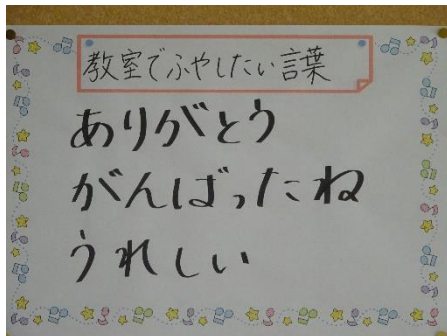 教室でふやしたい言葉
ありがとう
がんばったね
うれしい